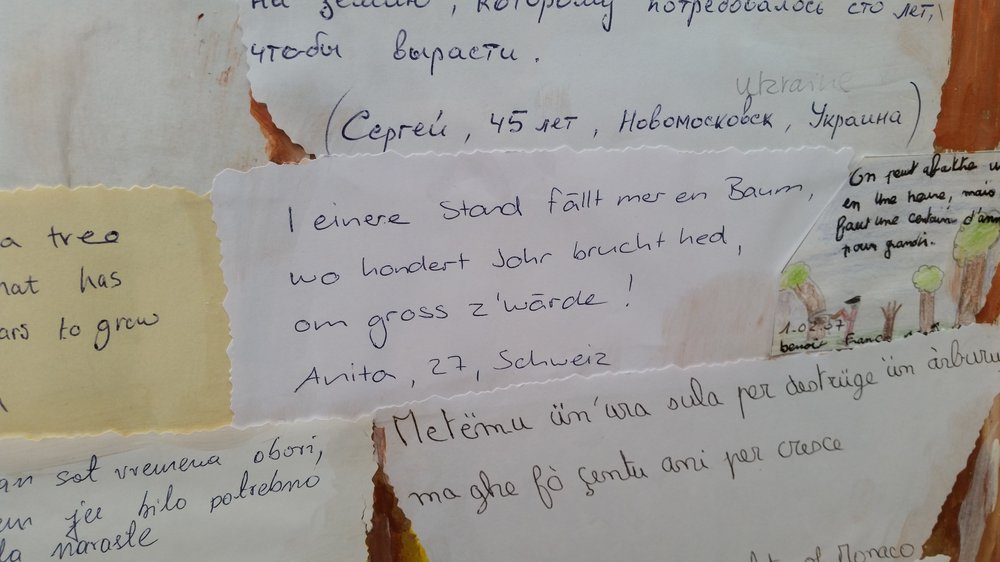 на землю, которому потребовалось сто лет,
чтобы вырасти.
ukraine
(Сергей, 45 лет, Новомосковск, Украина)
a tree
hat has
ars to grow
I einere Stand fällt mer en Baum,
wo hondert Johr brucht hed,
om gross z'wärde!
Anita, 27, Schweiz
On peut abattre u
en une heure, mais
faut une certain d'ann
pour grandir.
1.02.07
benoit France
an sat vremena obori,
je bilo potrebno
da naraste
Metëmu ün'ura sula per destrüge ün àrburu
ma ghe fò çentu ani per cresce
of Monaco